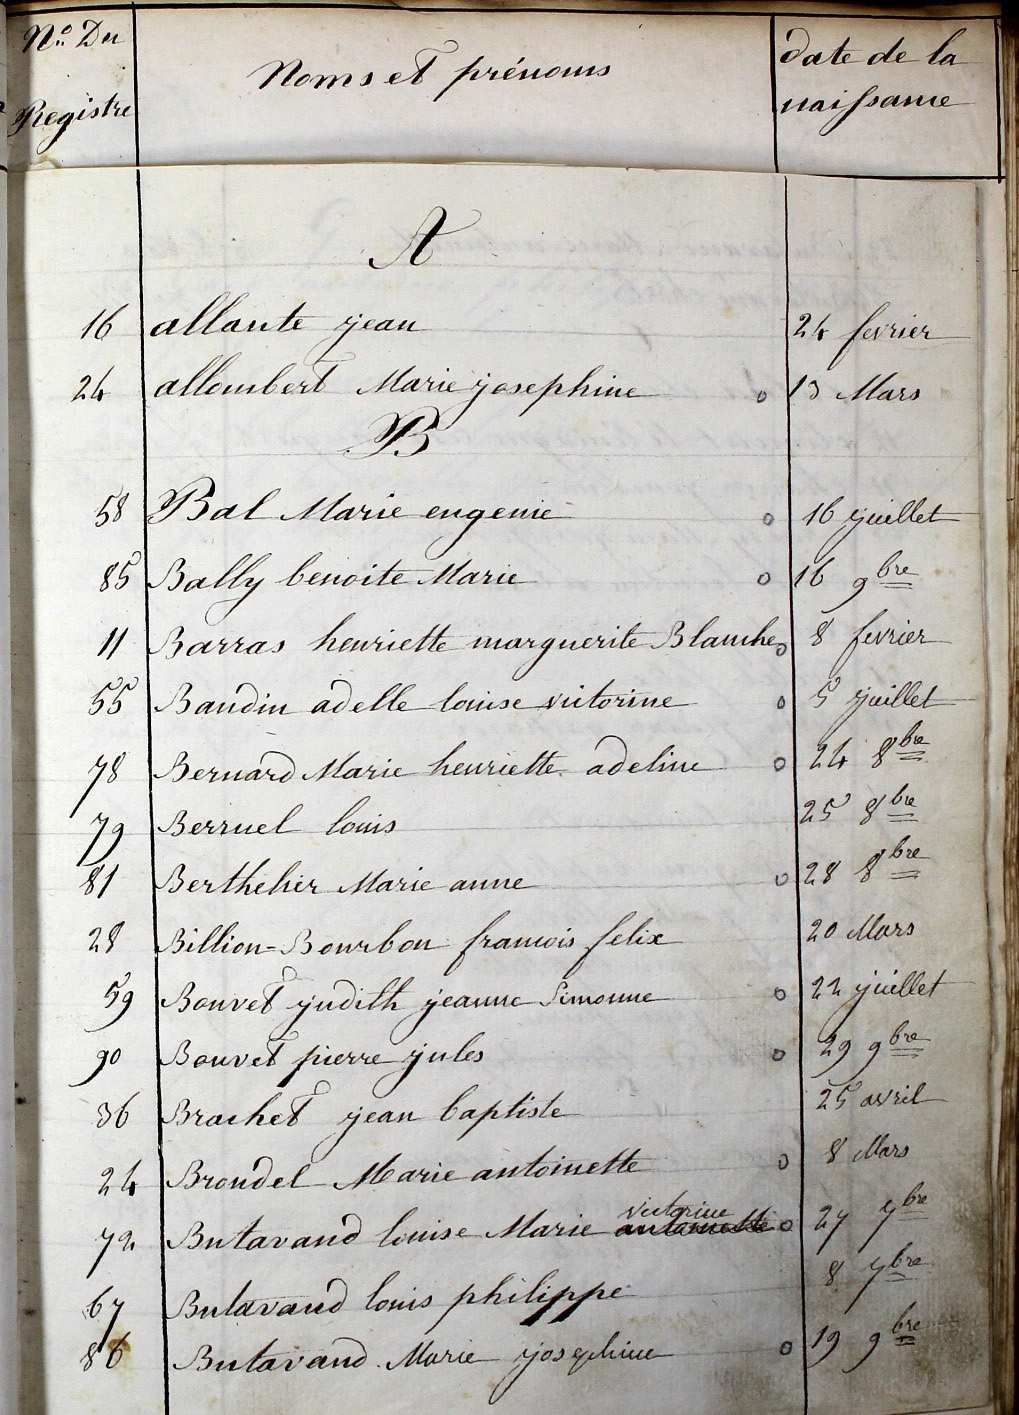 No Du Registre Noms et prénoms date de la naissance
A
16 allante jean 24 fevrier
24 allombert Marie josephine o 13 Mars
B
58 Bal Marie eugenie o 16 juillet
85 Bally benoite Marie o 16 9bre
11 Barras henriette marguerite Blanche o 8 fevrier
55 Baudin adelle louise victorine o 5 juillet
78 Bernard Marie henriette adeline o 24 8bre
79 Berruel louis 25 8bre
81 Berthelier Marie anne o 28 8bre
28 Billion-Bourbon francois felix 20 Mars
59 Bouvet judith jeanne Simonne o 22 juillet
90 Bouvet pierre jules o 29 9bre
36 Brachet jean baptiste 25 avril
24 Brondel Marie antoinette o 8 Mars
victorine
72 Butavand louise Marie antoinette o 27 7bre
67 Butavand louis philippe 8 7bre
86 Butavand Marie josephine o 19 9bre